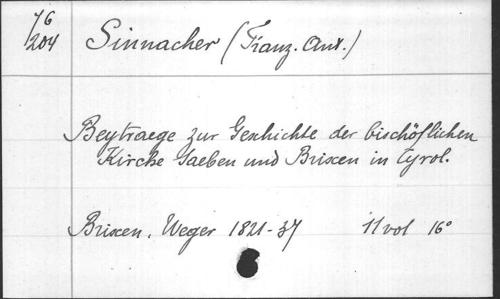 76
204
Sinnacher (Franz. Ant.)
Beytraege zur Geschichte der bischöflichen
Kirche Saeben und Brixen in Tyrol.
Brixen, Weger 1821-37 11 vol 16°